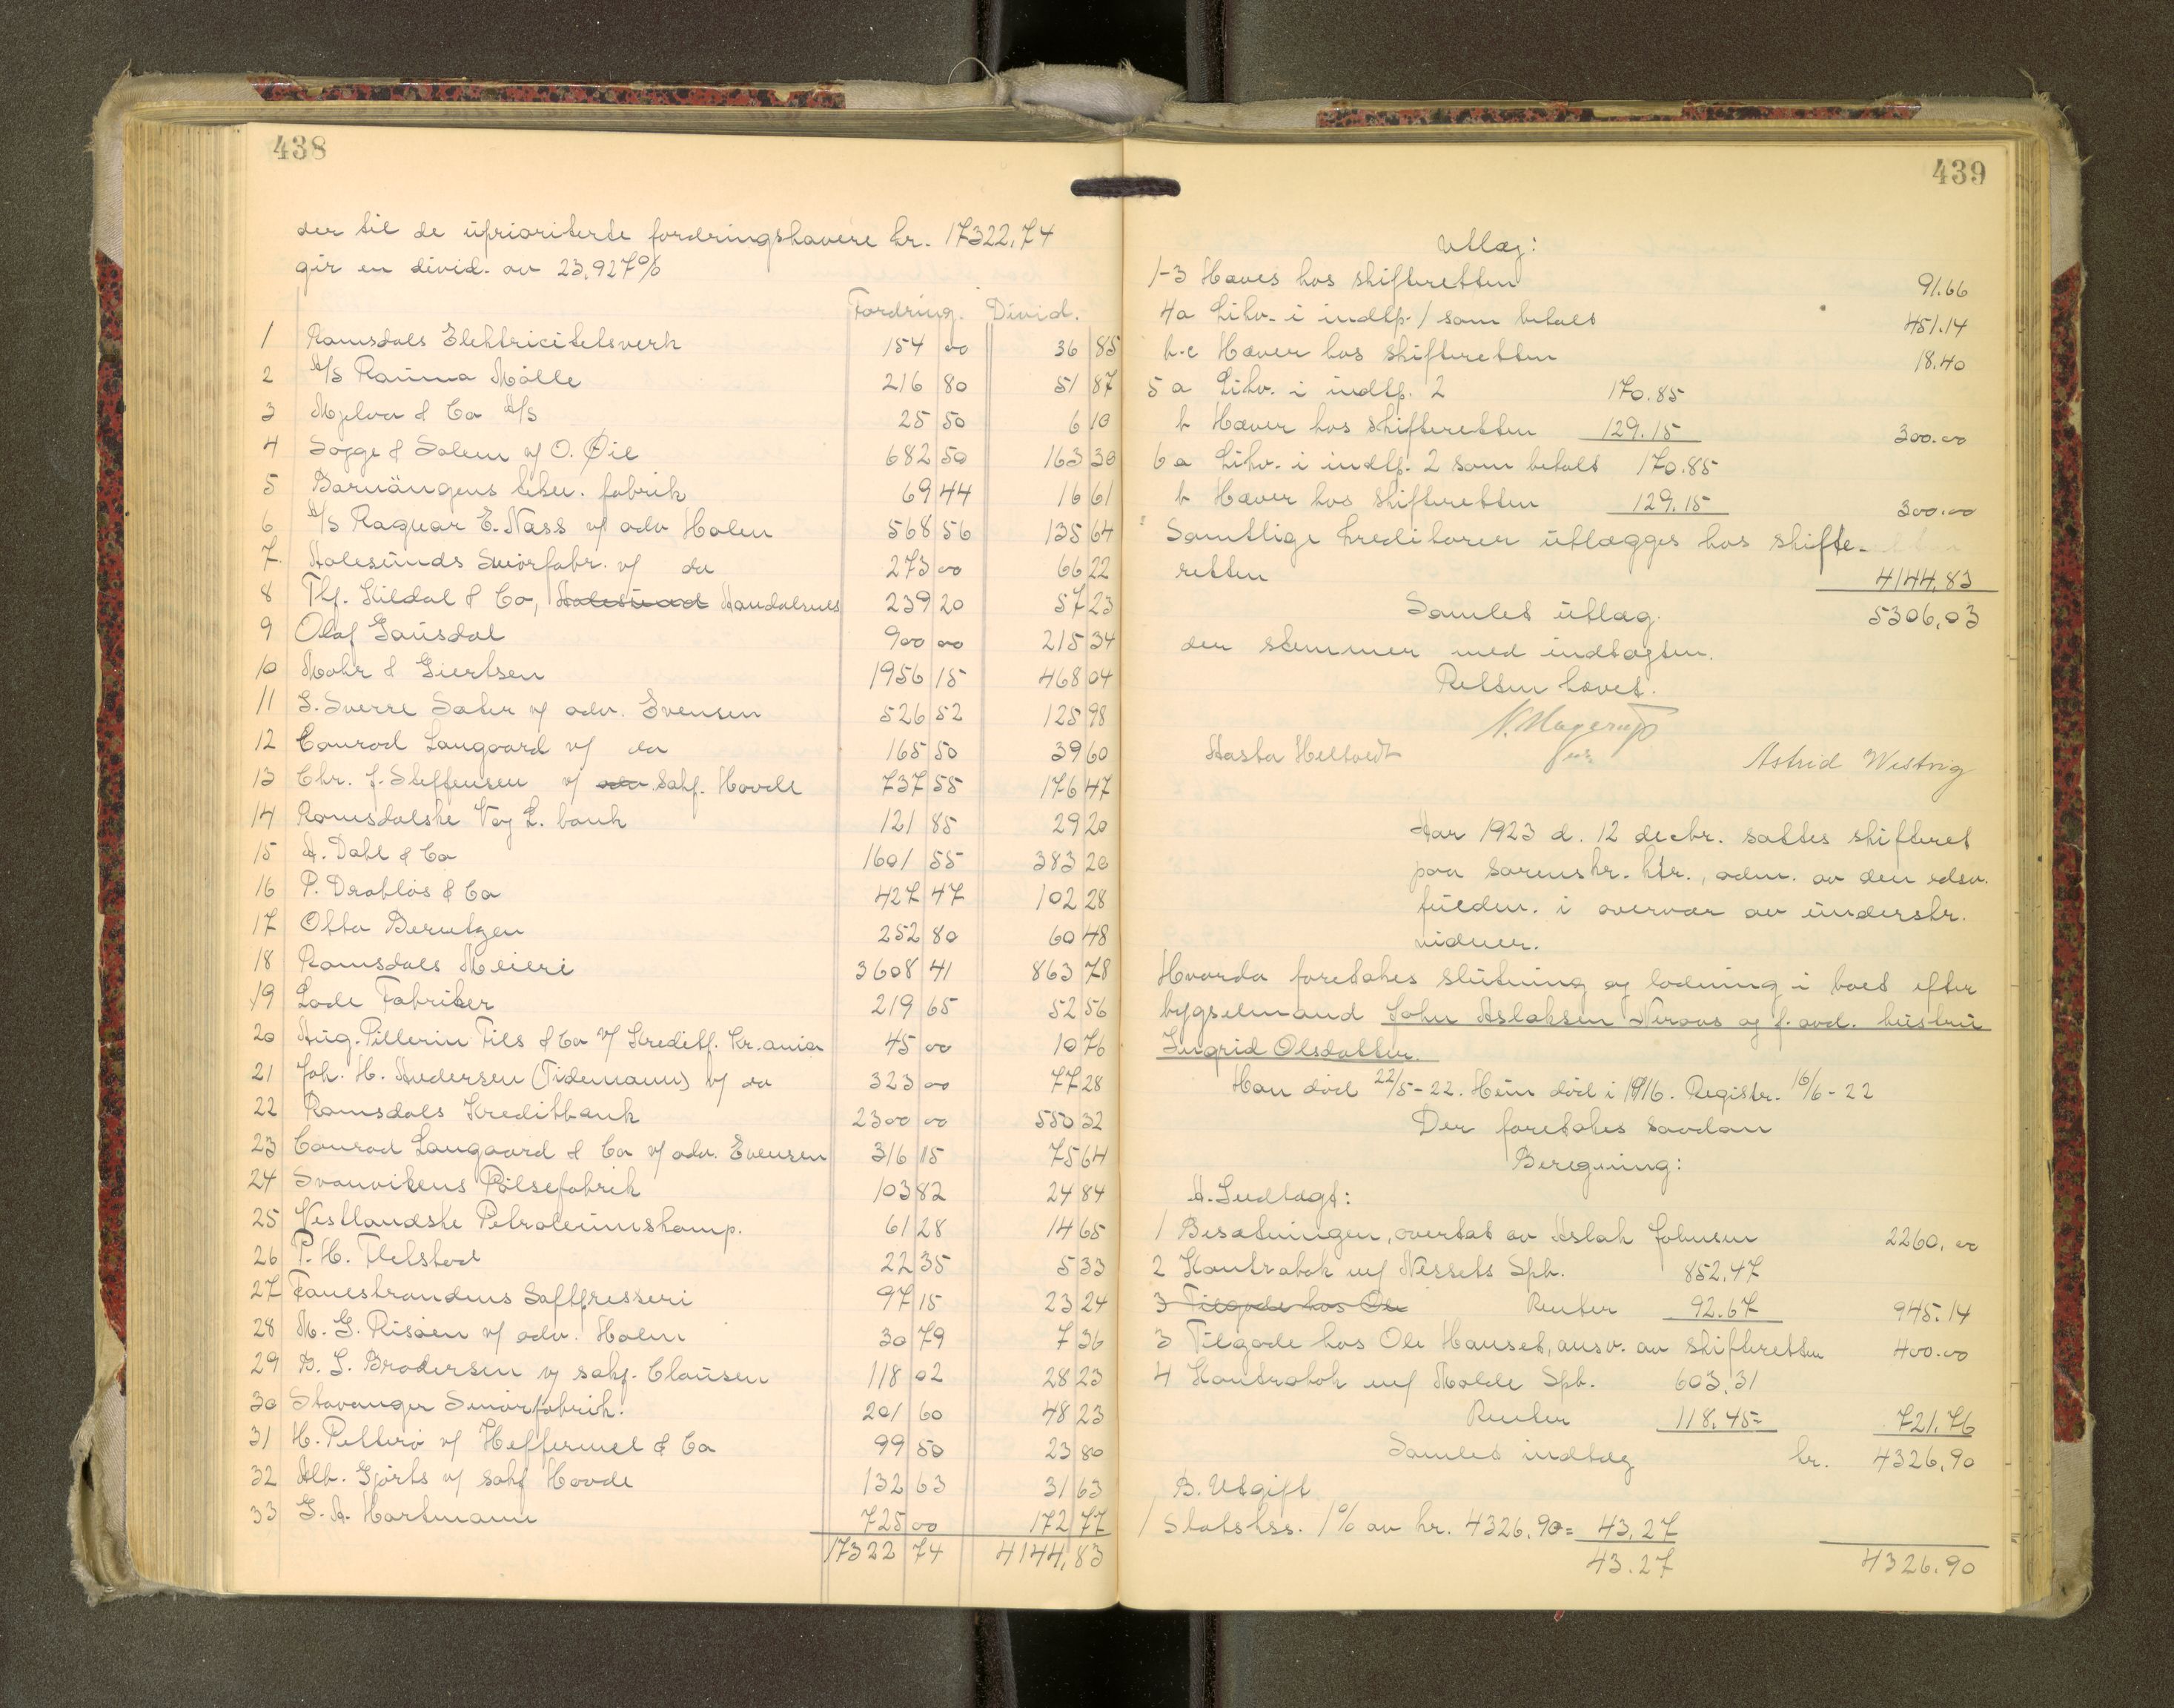 438
der til de uprioriterte fordringshavere kr. 17322,74
gir en divid. av 23,927%
Fordring. Divid.
1 Romsdals Elektricitetsverk 154 00 36 85
2 A/S Rauma Mölle 216 80 51 87
3 Mjelva & Co A/S 25 50 6 10
4 Sogge & Solem v/ O. Øie 682 50 163 30
5 Barnängens tekn. fabrik 69 44 16 61
6 A/S Ragnar E. Næss v/ adv Holen 568 56 135 64
7. Aalesunds Smörfabr. v/ do 273 00 66 22
8 Thf. Kildal & Co, Aalesund Aandalsnes 239 20 57 23
9 Olaf Gausdal 900 00 215 34
10 Mohr & Giertsen 1956 15 468 04
11 G. Sverre Sæter v/ adv. Evensen 526 52 125 98
12 Conrad Langaard v/ do 165 50 39 60
13 Chr. J. Steffensen v/ adv. Sakf. Hovde 737 55 176 47
14 Romsdalske Vexelbank 121 85 29 20
15 A. Dahl & Co 1601 55 383 20
16 P. Drabløs & Co 427 47 102 28
17 Otto Berntzen 252 80 60 48
18 Romsdals Meieri 3608 41 863 78
19 Lade Fabriker 219 65 52 56
20 Aug. Pellerin Fils & Co v/ Kreditf. Kr.ania 45 00 10 76
21 Joh. H. Andersen (Tidemann) v/ do 323 00 77 28
22 Romsdals Kreditbank 2300 00 550 32
23 Conrad Langaard & Co v/ adv. Evensen 316 15 75 64
24 Svanvikens Pölsefabrik 103 82 24 84
25 Vestlandske Petroleumskomp. 61 28 14 65
26 P. H. Flatstad 22 35 5 33
27 Fanestrandens Saftpresseri 97 15 23 24
28 M. G. Risöen v/ adv. Holen 30 79 7 36
29 B. L. Brodersen v/ sakf. Clausen 118 02 28 23
30 Stavanger Smörfabrik. 201 60 48 23
31 H. Petterö v/ Heffermel & Co 99 50 23 80
32 Alb. Gjörts v/ sakf Hovde 132 63 31 63
33 G. A. Hartmann 725 00 172 77
17322 74 4144,83
439
Utlæg:
1-3 Haves hos skifteretten 91.66
4a Likv. i indtp. 1 som betalt 451.14
b-c Hæver hos skifteretten 18.40
5 a Likv. i indtp. 2 170.85
b Hæver hos skifteretten 129.15 300.00
6 a Likv. i indtp. 2 som betalt 170.85
b Hæver hos skifteretten 129.15 300.00
Samtlige kreditorer utlægges hos skifte-
retten 4144,83
Samlet utlæg. 5306,03
der stemmer med indtægten.
Retten hævet.
N. Magerup
Aasta Heltvedt Astrid Westvig
Aar 1923 d. 12 decbr. sattes skifteret
paa sorenskr. ktr., adm. av den edsv.
fuldm. i overvær av underskr.
vidner.
Hvorda foretokes slutning og lodning i boet efter
bygselmand John Aslaksen Neraas og f. avd. hustru
Ingrid Olsdatter.
Han död 22/5-22. Hun död i 1916. Registr. 16/6-22
Der foretokes saadan
Beregning:
A. Indtægt:
1 Besætningen, overtat av Aslak Johnsen 2260,00
2 Kontrabok m/ Nessets Spb. 852,47
3 Tilgode hos Ole Renter 92.67 945.14
3 Tilgode hos Ole Hanset, ansv. av skifteretten 400.00
4 Kontrabok m/ Molde Spb. 603,31
Renter 118,45= 721,76
Samlet indtæg kr. 4326,90
B. Utgift
1 Statskss. 1% av kr. 4326,90= 43,27
43.27 4326.90